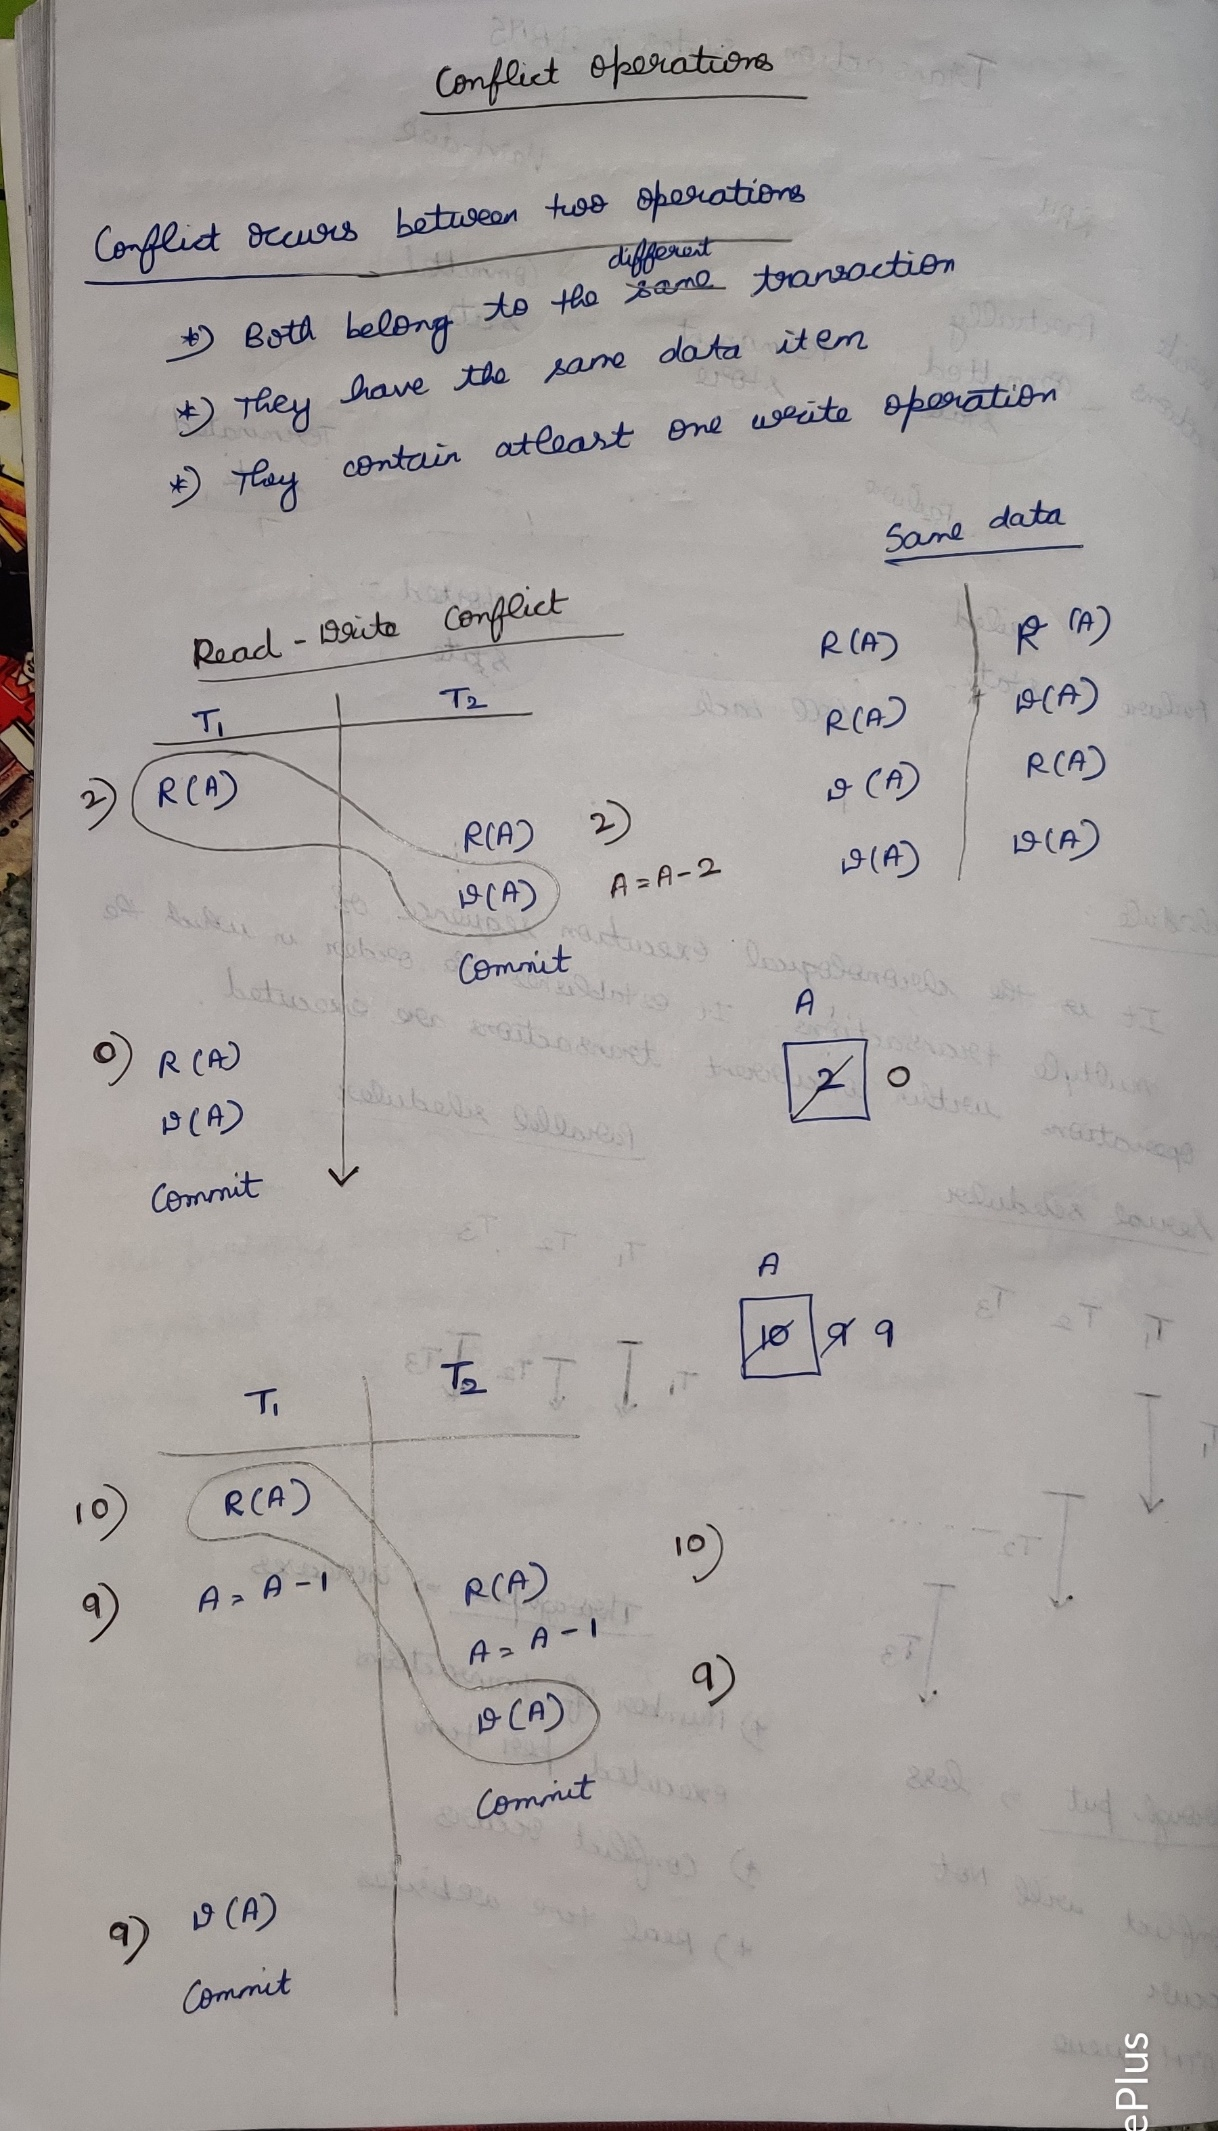 Conflict operations
Conflict occurs between two operations
different
*) Both belong to the same transaction
*) They have the same data item
*) They contain atleast one write operation
Same data
R(A) R(A)
R(A) W(A)
W(A) R(A)
W(A) W(A)
Read - Write Conflict
T1 T2
2) R(A)
R(A) 2)
W(A) A=A-2
Commit
A
2 0
0) R(A)
W(A)
Commit
A
10 9 9
T1 T2
10) R(A)
R(A) 10)
9) A = A-1
A = A-1
W(A) 9)
Commit
9) W(A)
Commit
ePlus